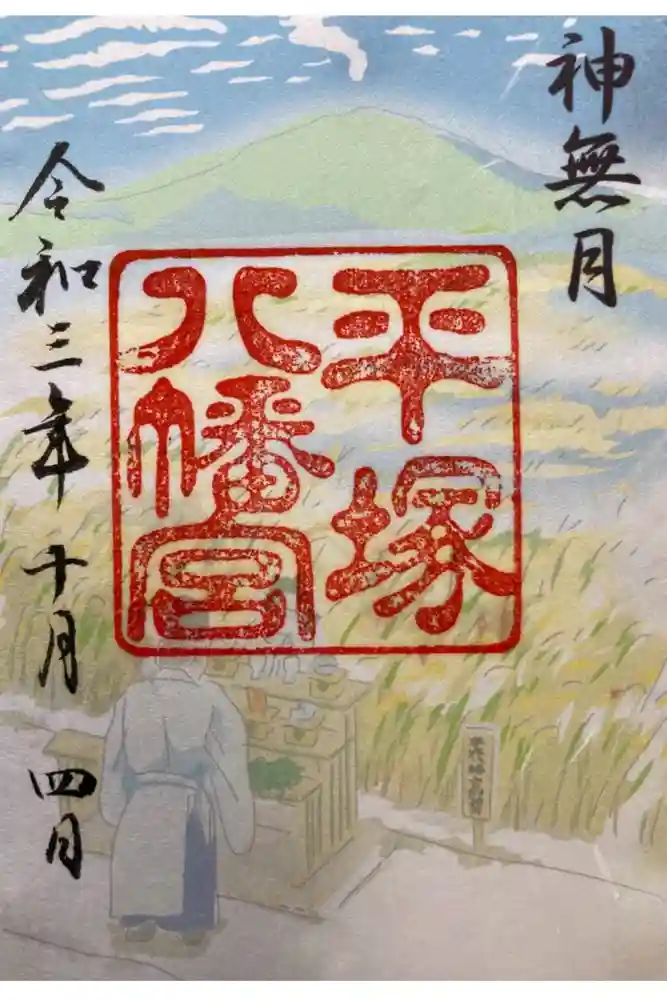 神無月
平塚
八幡宮
令和三年十月四月